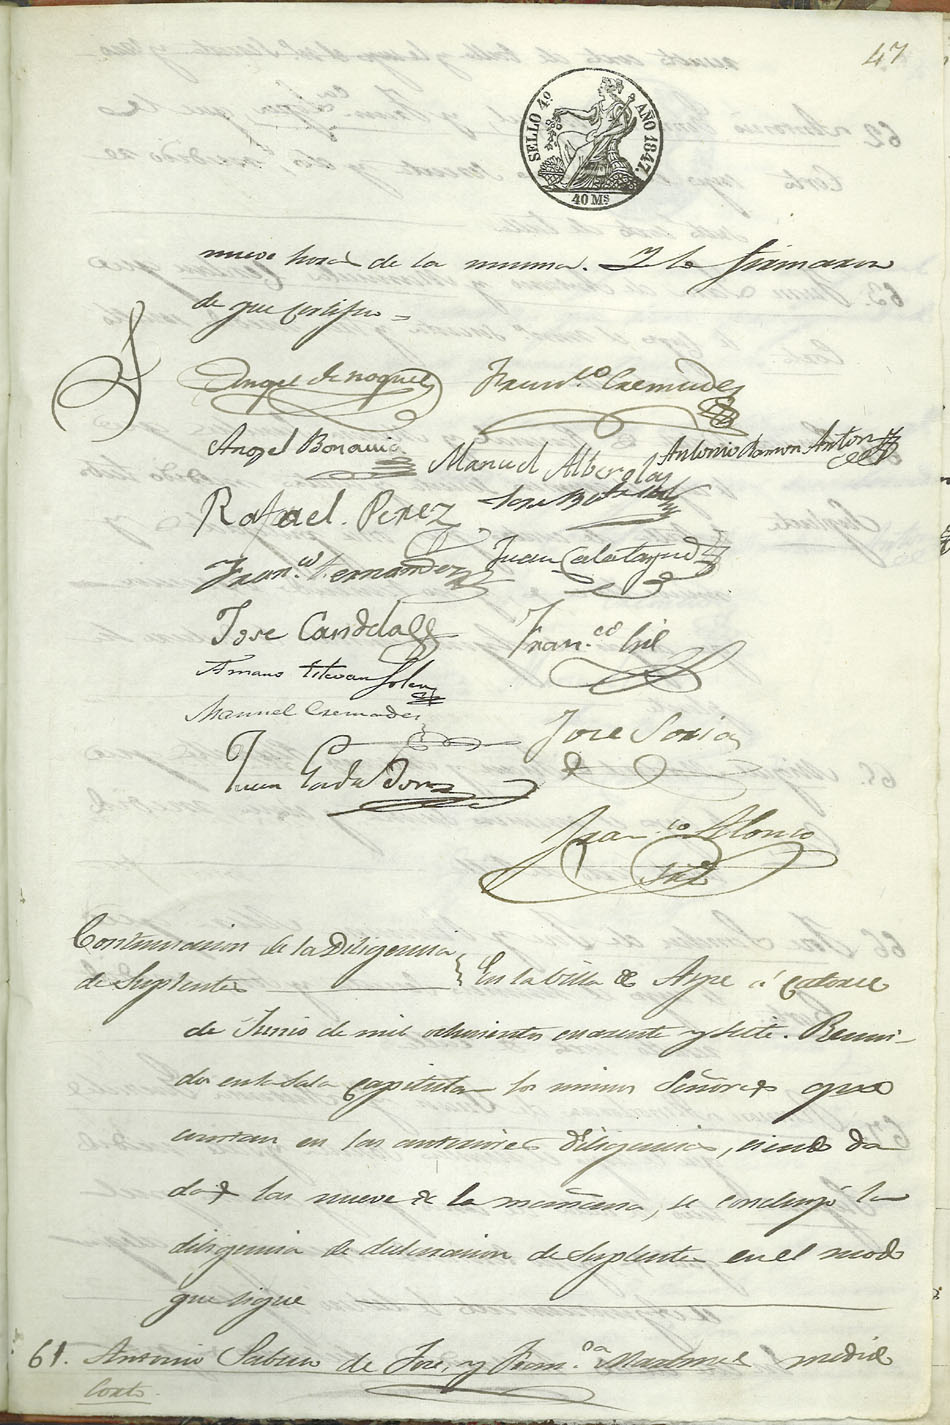 47
SELLO 4º AÑO 1847.
40 Ms
nueve horas de la misma. Y lo firmaron
de que certifico =
Angel de Noguel Franco Cremades
Angel Bonavia Manuel Alberola Antonio Ramon Anton
Rafael Perez Jose
Franco Hernandez Juan Calatayud
Jose Candela Franco Gil
Amano Estevan
Manuel Cremades
Jose Soria
Juan
Franco Alonso
Srio
Continuacion de la Diligencia
de Suplentes En la Villa de Aspe á Catorce
de Junio de mil ochocientos cuarenta y siete. Reuni-
dos en la Sala capitular los mismos Señores que
constan en las anteriores diligencias, siendo da
das las nueve de la mañana, se continuó la
diligencia de declaracion de Suplentes en el modo
que sigue
61. Antonio Sabuco de Jose, y Franca Martinez midió
Corto.